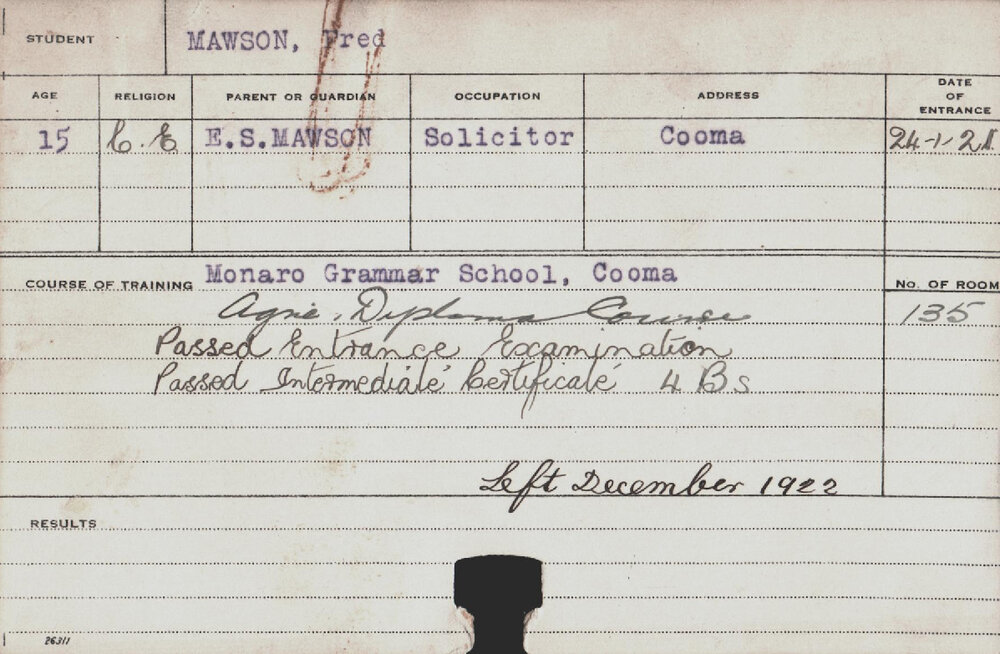 STUDENT MAWSON, Fred
AGE RELIGION PARENT OR GUARDIAN OCCUPATION ADDRESS DATE OF ENTRANCE
15 C.E E.S.MAWSON Solicitor Cooma 24-1-21.
COURSE OF TRAINING Monaro Grammar School, Cooma No. OF ROOM
Agric. Diploma Course 135
Passed Entrance Examination
Passed Intermediate Certificate 4 Bs
Left December 1922
RESULTS
26311